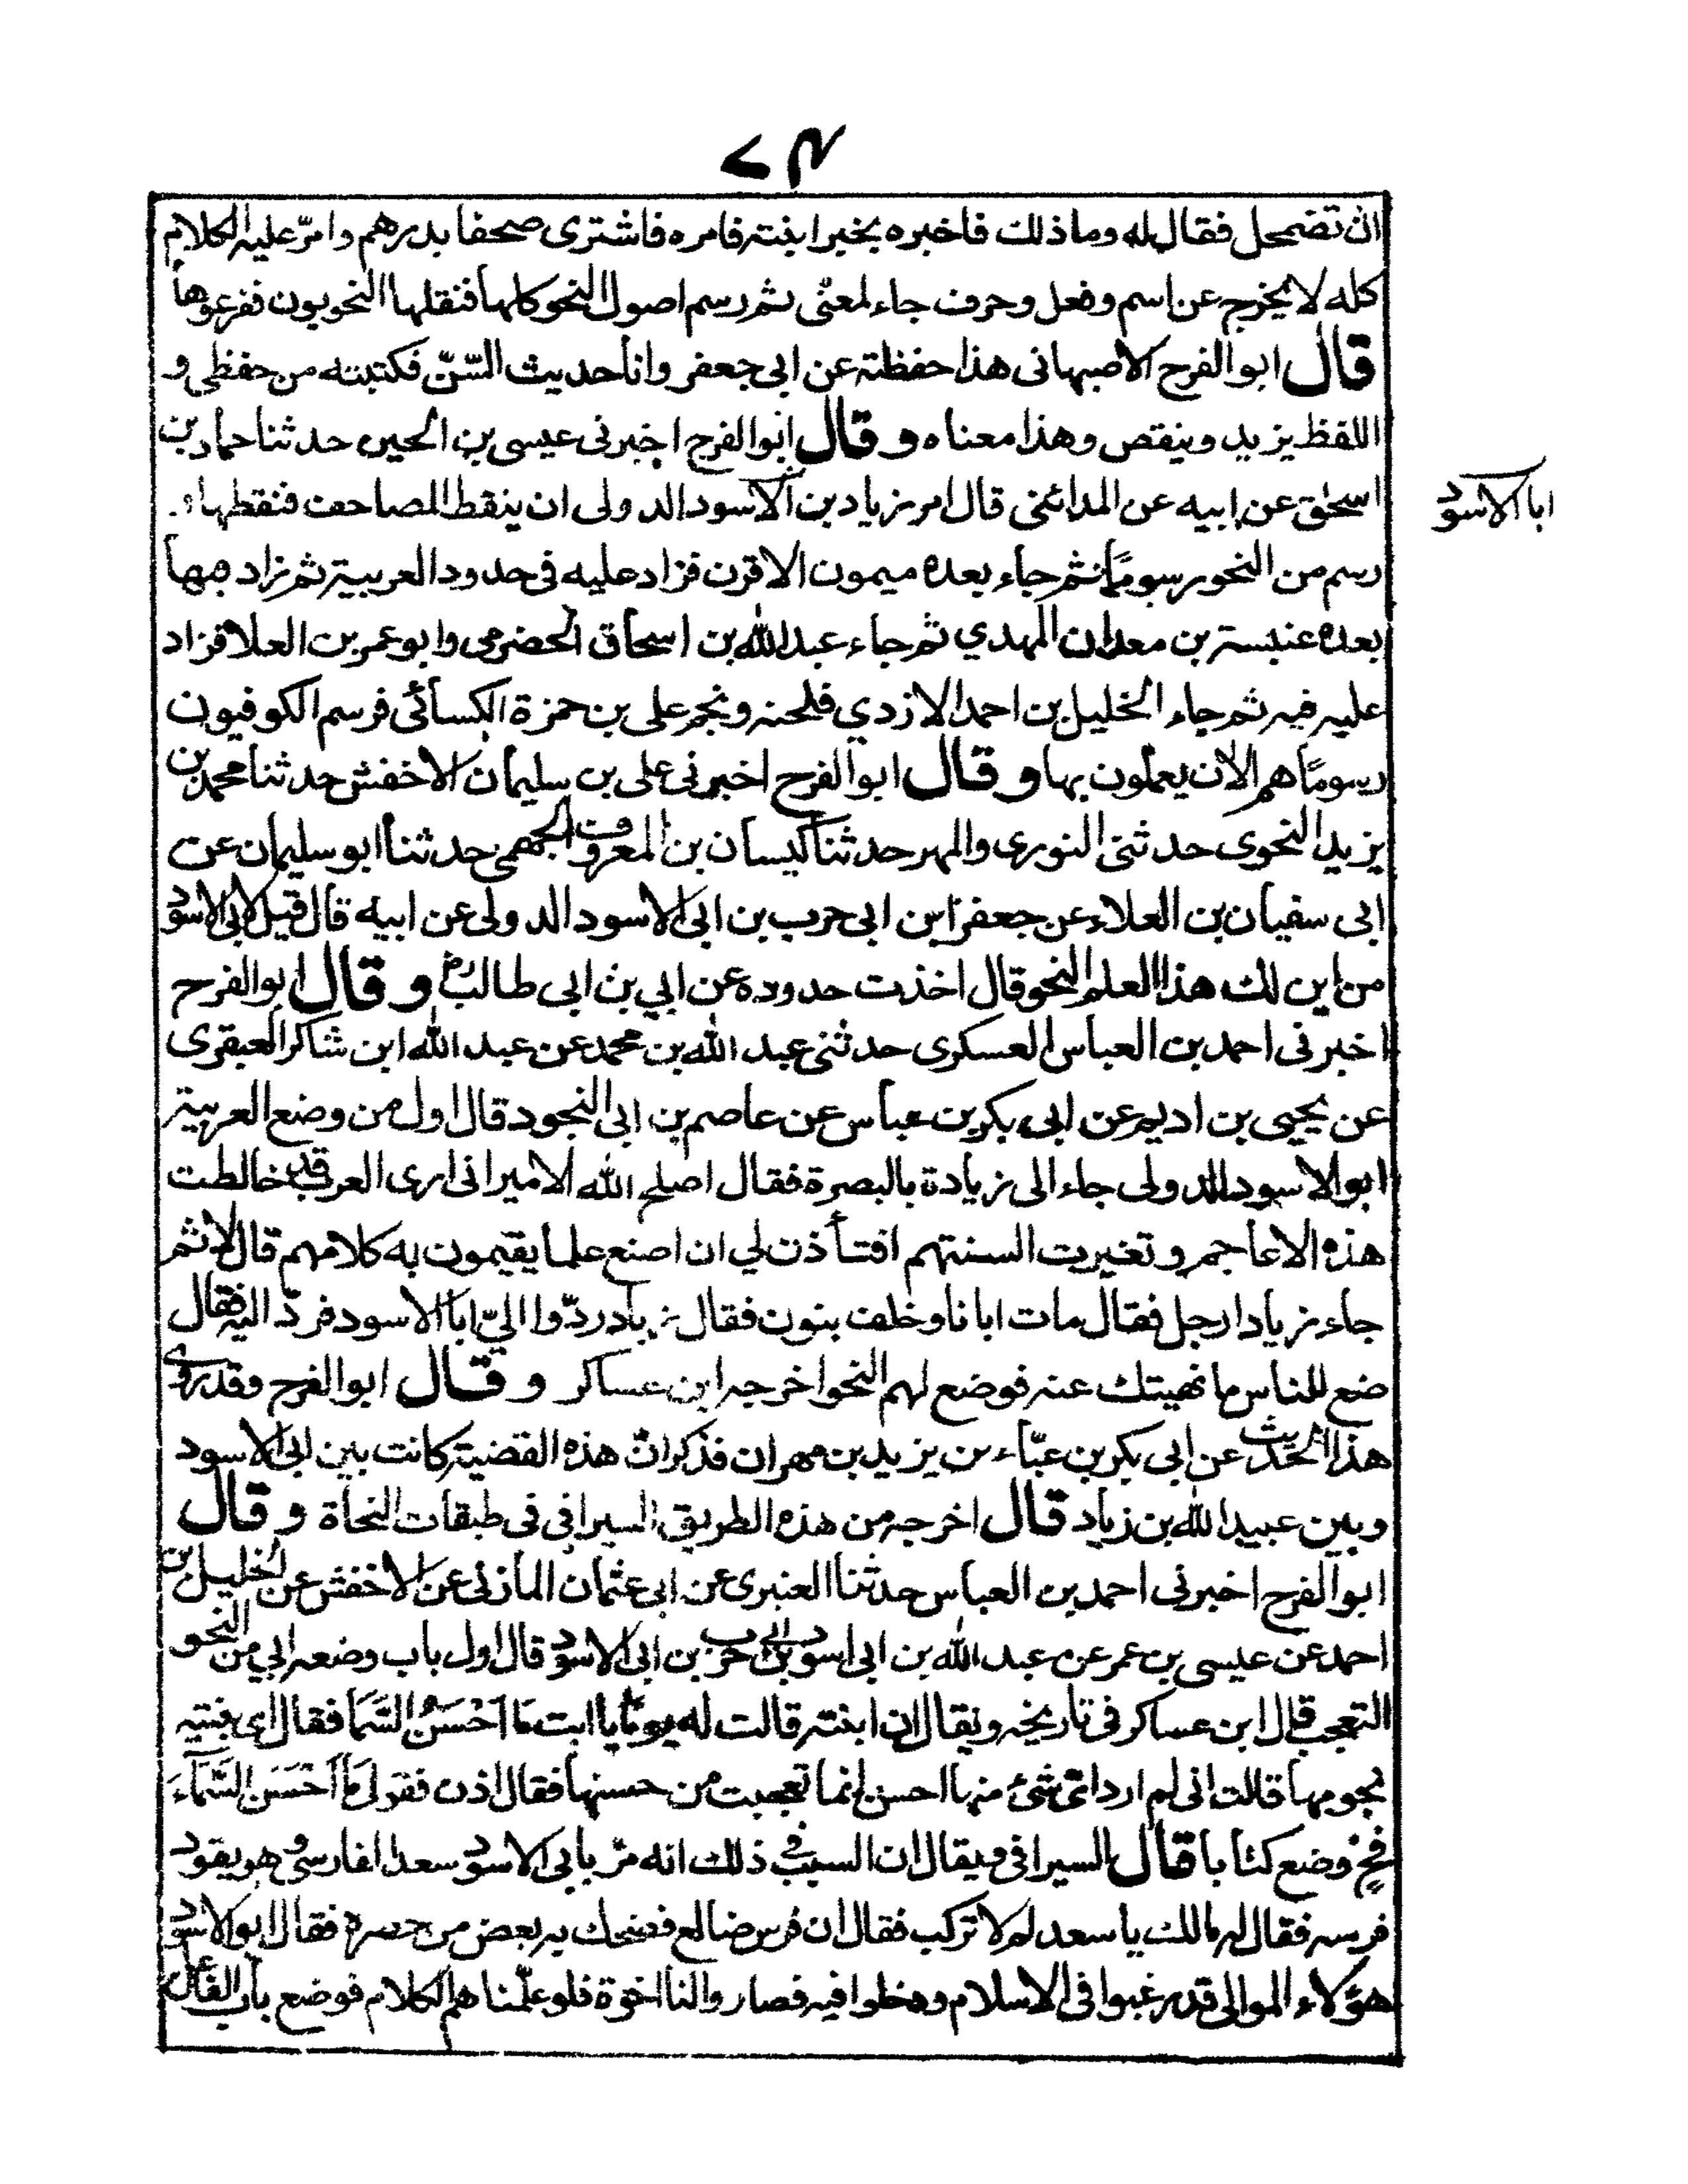 ان تضمحل فقال له وما ذلك فاخبره بخبر ابنته فامره فاشترى صحفا بدرهم وامرّ عليه الكلام
كله لا يخرج عن اسم وفعل وحرف جاء لمعنى ثم رسم اصول النحو كلها فنقلها النحويون ففرعوها
قال ابو الفرج الاصبهانى هذا حفظته عن ابى جعفر وانا حديث السّنّ فكتبته من حفظى و
اللفظ يزيد وينقص وهذا معناه وقال ابو الفرج اخبرنى عيسى بن الحين حدثنا حماد بن
اسحٰق عن ابيه عن المدائنى قال امر زياد بن الاسود الدولى ان ينقط المصاحف فنقطها و
ابا الاسود
رسم من النحو رسومًا ثم جاء بعده ميمون الاقرن فزاد عليه فى حدود العربية ثم زاد فيها
بعده عنبسة بن معدان المهدي ثم جاء عبد الله بن اسحاق الحضرمى وابو عمر بن العلا فزاد
عليه فيه ثم جاء الخليل بن احمد الازدي فلحنه ونجم على بن حمزة الكسائى فرسم الكوفيون
رسومًا هم الاٰن يعملون بها وقال ابو الفرج اخبرنى على بن سليمان الاخفش حدثنا محمد بن
يزيد النحوى حدثنى النورى والمهر حدثنا كيسان بن المعروف الجهمى حدثنا ابو سليمان عن
ابى سفيان بن العلاء عن جعفر ابن ابى حرب بن ابى الاسود الدولى عن ابيه قال قيل لابى الاسود
من اين لك هذا العلم النحو قال اخذت حدوده عن ابي بن ابى طالبؓ وقال ابو الفرج
اخبرنى احمد بن العباس العسكرى حدثنى عبد الله بن محمد عن عبد الله ابن شاكر العبقرى
عن يحيى بن اديم عن ابى بكر بن عباس عن عاصم بن ابى النجود قال اول من وضع العربية
ابو الاسود الدولى جاء الى زيادة بالبصرة فقال اصلح الله الامير انى ارى العرب قد خالطت
هذه الاعاجم وتغيرت السنتهم افتأذن لي ان اصنع علما يقيمون به كلامهم قال لا ثم
جاء زيادا رجل فقال مات ابانا وخلف بنون فقال زياد ردّوا اليّ ابا الاسود فردّ اليه فقال
ضع للناس ما نهيتك عنه فوضع لهم النحو اخرجه ابن عساكر وقال ابو الفرج وقد روى
هذا الحديث عن ابى بكر بن عبّاء من يزيد بن مهران فذكر انّ هذه القضية كانت بين ابى الاسود
وبين عبيد الله بن زياد قال اخرجه من هذه الطريق السيرافى فى طبقات النحاة وقال
ابو الفرج اخبرنى احمد بن العباس حدثنا العنبرى عن ابى عثمان المازنى عن الاخفش عن الخليل بن
احمد عن عيسى بن عمر عن عبد الله بن ابى اسود حرب بن ابى الاسود قال اول باب وضعه ابي من النحو
التعجب قال ابن عساكر فى تاريخه ويقال ان ابنته قالت له يومًا يا ابت مَا اَحْسَنُ السَّمَا فقال اى بنيه
نجومها قالت انى لم ارد اى شئ منها احسن انما تعجبت من حسنها فقال اذن فقولى مَا اَحْسَنَ السَّمَآءَ
فحٍ وضع كتابا قال السيرافى ويقال ان السبب فى ذلك انه مرّ بابى الاسود سعد الفارسى وهو يقود
فرسه فقال له مالك يا سعد لم لا تركب فقال ان فرس ضالع فضحك به بعض من حصره فقال ابو الاسود
هؤلاء الموالى قد رغبوا فى الاسلام ودخلوا فيه فصاروا لنا اخوة فلو علّمناهم الكلام فوضع باب الفاعل